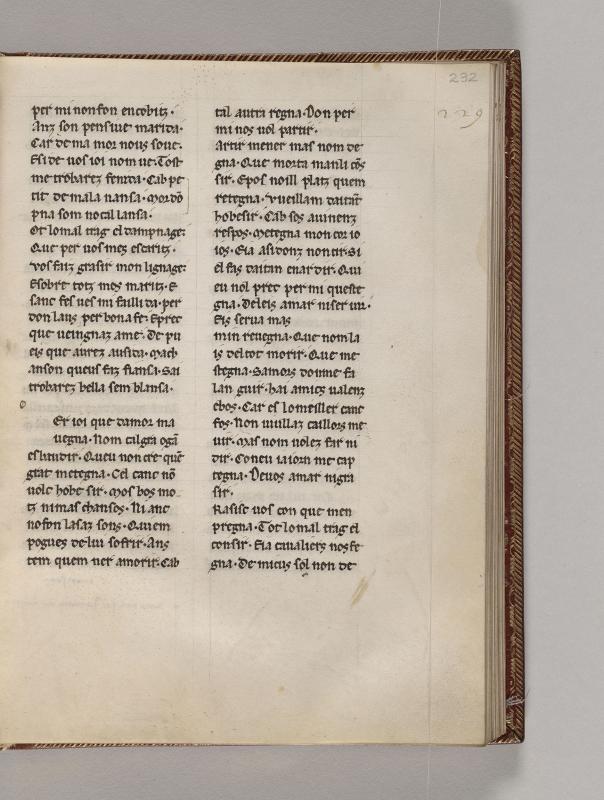 232
229
per mi non fon encobitz.
Anz son pensiue marida.
Car de ma mor nous soue.
Esi de uos ioi nom ue. Tost
me trobarez fenida. Cab pe
tit de mala nansa. Mordō
pna som nocil lansa.
Ot lomal trag el dampnage:
Que per uos mes escaritz.
Vos faiz grasir mon lignage:
Esobre totz mes maritz. E
sanc fes ues mi failli da. per
don laus per bona fe: Eprec
que ueingnaz ame. De pu
eis que aurez ausida. Mach
anson queus faz fiansa. Sai
trobarez bella sem blansa.
Er ioi que damor ma
uegna. Nom calgra ogā
esbaudir. Queu non cre quē
grat metegna. Cel canc nō
uolc hobe sir. Mos bos mo
tz ni mas chansos. Ni anc
no fon lasaz sons. Quiem
pogues de lui sofrir. Ans
tem quem ner amorir. Cab
tal autra regna. Don per
mi nos uol partir.
Artir mener mas nom de
gna. Que morta manli cōs
sir. Epos noill platz quem
retegna. Vueillam daitāt
hobesir. Cab sos auinenz
respos. Metegna mon cor io
ios. Eia asidonz non tir. Si
el faz daitan enardir. Qui
eu nol prec per mi queste
gna. Deleis amar niseruir.
Eis serua mas
min reuegna. Que nom la
is deltot morir. Que me
stegna. Samors donme fa
lan guir. hai amics ualenz
ebos. Car es lo meiller canc
fos. Non uuillaz caillors me
uir. Mas nom uolez far ni
dir. Con eu iaiorn me cap
tegna. Deuos amar nigra
sir.
Rasisc uos con que men
pregna. Tot lo mal trag el
consir. Eia caualiers nos fe
gna. De micus sol non de